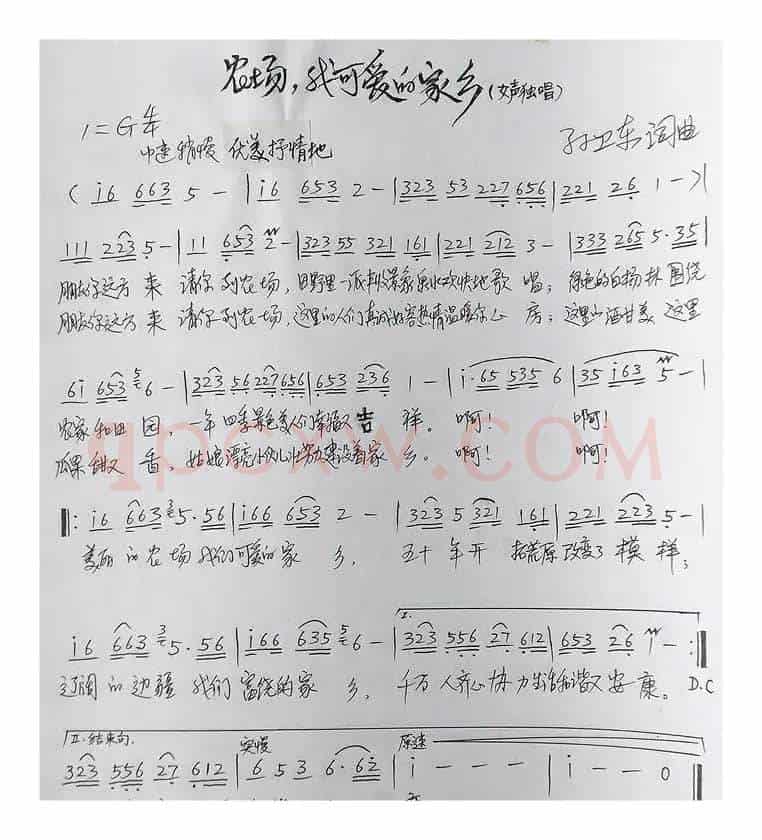 农场，我可爱的家乡（女声独唱）
1=G 4/4
中速稍慢 优美抒情地
孙卫东词曲
( i6 663 5 - | i6 653 2 - | 323 53 227 656 | 221 26 1 - ) |
111 223 5 - | 11 653 2 - | 323 55 321 161 | 221 212 3 - | 333 265 5·35 |
朋友你远方来 请你到农场，田野里一派 欢快地歌唱；绿色的白杨林围绕
朋友你远方来 请你到农场，这里的人们真诚 热情温暖你心房；这里 酒甘美 这里
6i 653 5 6 - | 323 56 227 656 | 653 236 1 - | i·65 535 6 | 35 i63 5 - |
农家和田园，一年四季景色美人们幸福又吉祥。啊！啊！
瓜果甜又香，姑娘漂亮小伙 建设着家乡。啊！啊！
qpcxw.COM
‖: i6 663 3 5·56 | i66 653 2 - | 323 5 321 161 | 221 223 5 - |
美丽的农场我们可爱的家乡，五十年开 荒原改变了模样；
i6 663 3 5·56 | i66 635 5 6 - | I. 323 556 27 612 | 653 26 i - :‖
辽阔的边疆我们富饶的家乡，千万人齐心协力 和谐又安康。D.C
II.结束句. 突慢 原速
323 556 27 612 | 6 5 3 6·62 | i - - - | i - - 0 ‖